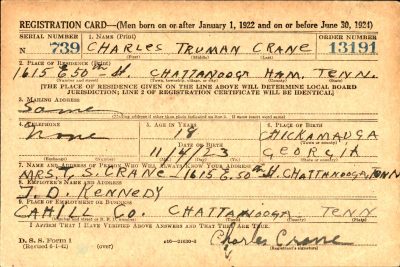 REGISTRATION CARD—(Men born on or after January 1, 1922 and on or before June 30, 1924)
SERIAL NUMBER 1. NAME (Print) ORDER NUMBER
N 739 CHARLES TRUMAN CRANE 13191
(First) (Middle) (Last)
2. PLACE OF RESIDENCE (Print)
1615 E. 50th St. CHATTANOOGA HAM. TENN.
(Number and street) (Town, township, village, or city) (County) (State)
[THE PLACE OF RESIDENCE GIVEN ON THE LINE ABOVE WILL DETERMINE LOCAL BOARD
JURISDICTION; LINE 2 OF REGISTRATION CERTIFICATE WILL BE IDENTICAL]
3. MAILING ADDRESS
Same
[Mailing address if other than place indicated on line 2. If same insert word same]
4. TELEPHONE 5. AGE IN YEARS 6. PLACE OF BIRTH
None 18 CHICKAMAUGA
DATE OF BIRTH (Town or county)
11/6/23 GEORGIA
(Exchange) (Number) (Mo.) (Day) (Yr.) (State or country)
7. NAME AND ADDRESS OF PERSON WHO WILL ALWAYS KNOW YOUR ADDRESS
MRS. T. S. CRANE - 1615 E. 50th St. CHATTANOOGA, TENN
8. EMPLOYER'S NAME AND ADDRESS
J. D. KENNEDY
9. PLACE OF EMPLOYMENT OR BUSINESS
CAHILL CO. CHATTANOOGA TENN
(Number and street or R. F. D. number) (Town) (County) (State)
I AFFIRM THAT I HAVE VERIFIED ABOVE ANSWERS AND THAT THEY ARE TRUE.
D. S. S. Form 1 Charles Crane
(Revised 6-1-42) (over) (Registrant's signature)